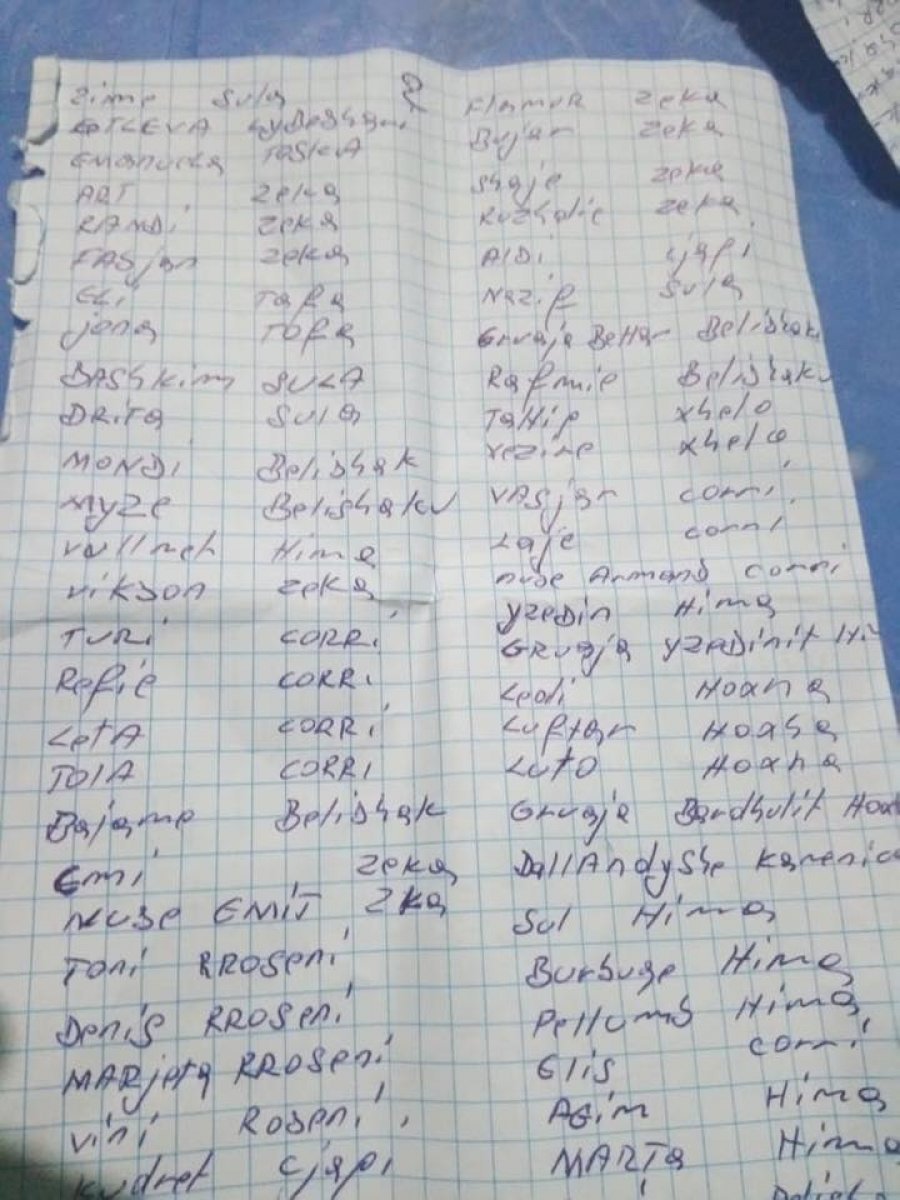 2
Zime Sula
EMANUELA TOSKA
ART ZEKA
RANDi ZEKA
FASjan ZEKA
ELi Tafa
jona Tofa
BAShkim SULA
DRiTa SULA
MONDi Belishak
Myze Belishaku
Vullnet Hima
Vikson Zeka
TURi CORRi
Refie CORRi
LetA CORRi
TOIA CORRi
Bajame Belishak
Emi Zeka
NUSe EMIT Zka
Toni RROSeni
Denis RROSeni
MARjeta RROSeni
Vini ROSeni
Kudret Cjapi
Flamur Zeka
Bujar Zeka
Shaje Zeka
Ruzhdie Zeka
AlDi Cjapi
Nazif Sula
Gruaja Beqar Belishak
Rafmie Belishaku
TaHip Xhelo
Xhelo
VASjar Corri
Laje Corri
nuse Armand Corri
Yzedin Hima
Gruaja YzeDinit Hi
Ledi Hoxha
Luftar Hoxha
Luto Hoxha
Gruaja Bardhulit Hoxh
DallAndyshe
Sul Hima
Burbuqe Hima
Pellumb Hima
Elis Corri
AGim Hima
MARTa Hima